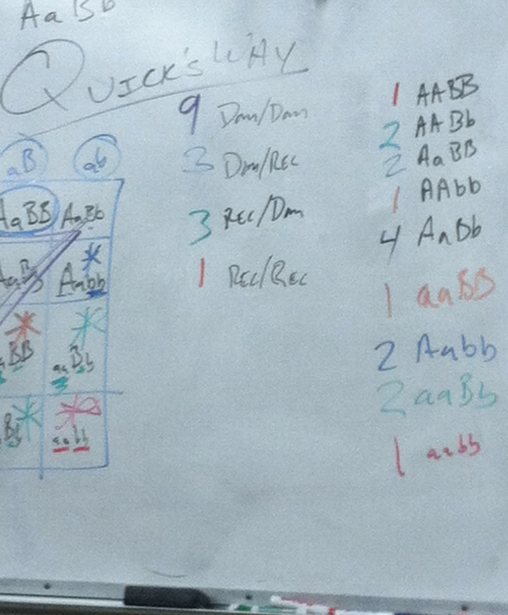 AaBb
QUICK'S WAY
9 Dom/Dom
3 Dom/REC
3 REC/Dom
1 REC/REC
1 AABB
2 AABb
2 AaBB
1 AAbb
4 AaBb
1 aaBB
2 Aabb
2 aaBb
1 aabb
aB ab
AaBB AaBb
Aabb
BB aaBb
Bb aabb